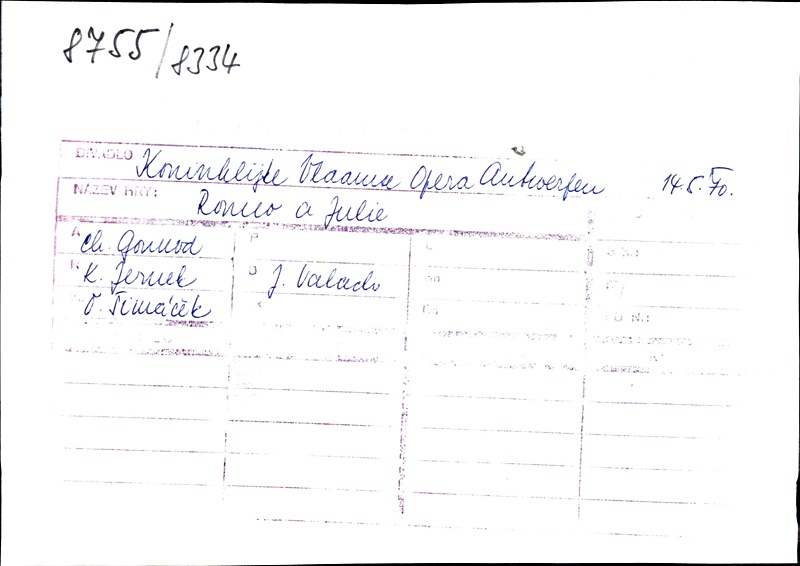 8755/8334
DIVADLO Koninklijke Vlaamse Opera Antwerpen 14.5.70.
NÁZEV HRY: Romeo a Julie
A Ch. Gounod P
R K. Jernek D J. Valado
O. Šimáček